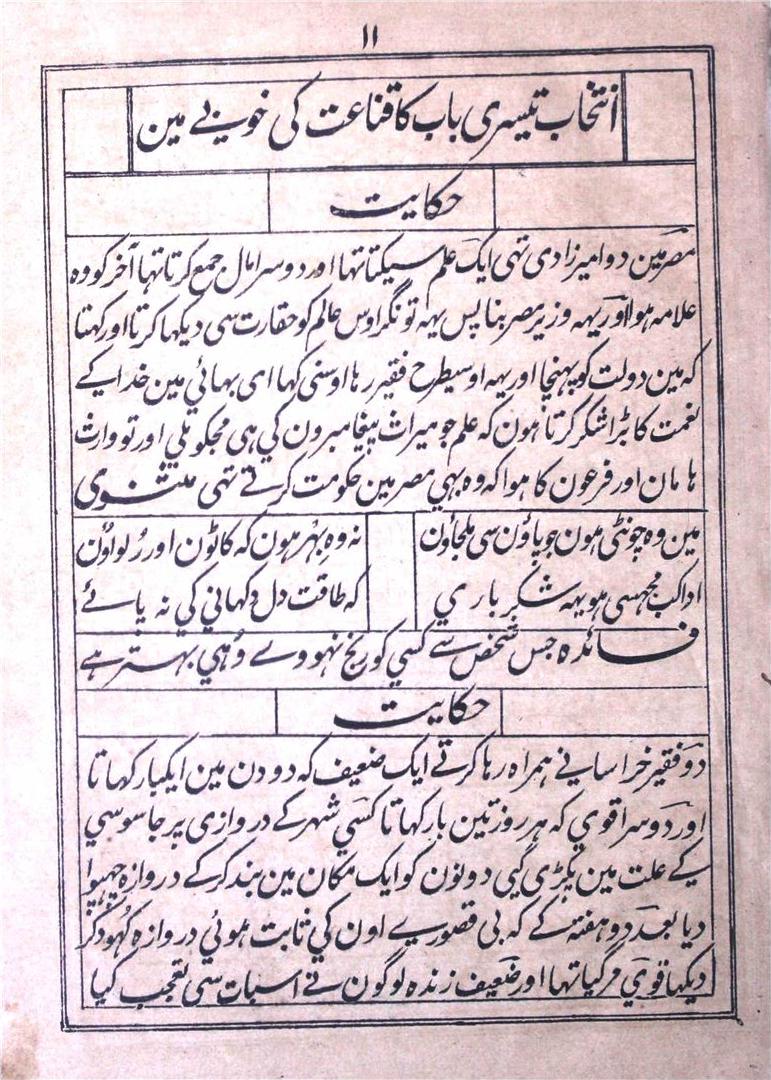 ۱۱
انتخاب تیسری باب کا قناعت کی خوبے مین
حکایت
مصر مین دو امیرزادی تہی ایک علم سیکتا تہا اور دوسرا مال جمع کرتا تہا آخر کو وہ
علامہ ہوا اور یہہ وزیر مصر بنا پس یہہ تونگر اوس عالم کو حقارت سی دیکہا کرتا اور کہتا
کہ مین دولت کو پہنچا اور یہہ اوسیطرح فقیر رہا اوسنی کہا ای بہائی مین خدا کے
نعمت کا بڑا شکر کرتا ہون کہ علم جو میراث پیغامبرون کی ہی مجکو ملی اور تو وارث
ہامان اور فرعون کا ہوا کہ وہ بہی مصر مین حکومت کرتے تہی مثنوی
مین وہ چونٹی ہون جو پاؤن سی ملجاؤن نہ وہ بہڑ ہون کہ کاٹون اور رُلواؤن
ادا کب مجہسی ہو یہہ شکر باری کہ طاقت دل دکہانی کی نہ پائے
فائدہ جس شخص سے کسی کو رنج نہووے وُہی بہتر ہے
حکایت
دو فقیر خراسانے ہمراہ رہا کرتے ایک ضعیف کہ دو دن مین ایکبار کہاتا
اور دوسرا قوی کہ ہر روز تین بار کہاتا کسی شہر کے دروازی پر جاسوسی
کے علت مین پکڑی گیی دونون کو ایک مکان مین بند کرکے دروازہ چہپوا
دیا بعد دو ہفتہ کے کہ بی قصورے اون کی ثابت ہوئی دروازہ کہود کر
دیکہا قوی مر گیا تہا اور ضعیف زندہ لوگون نے اسبات سی تعجب کیا